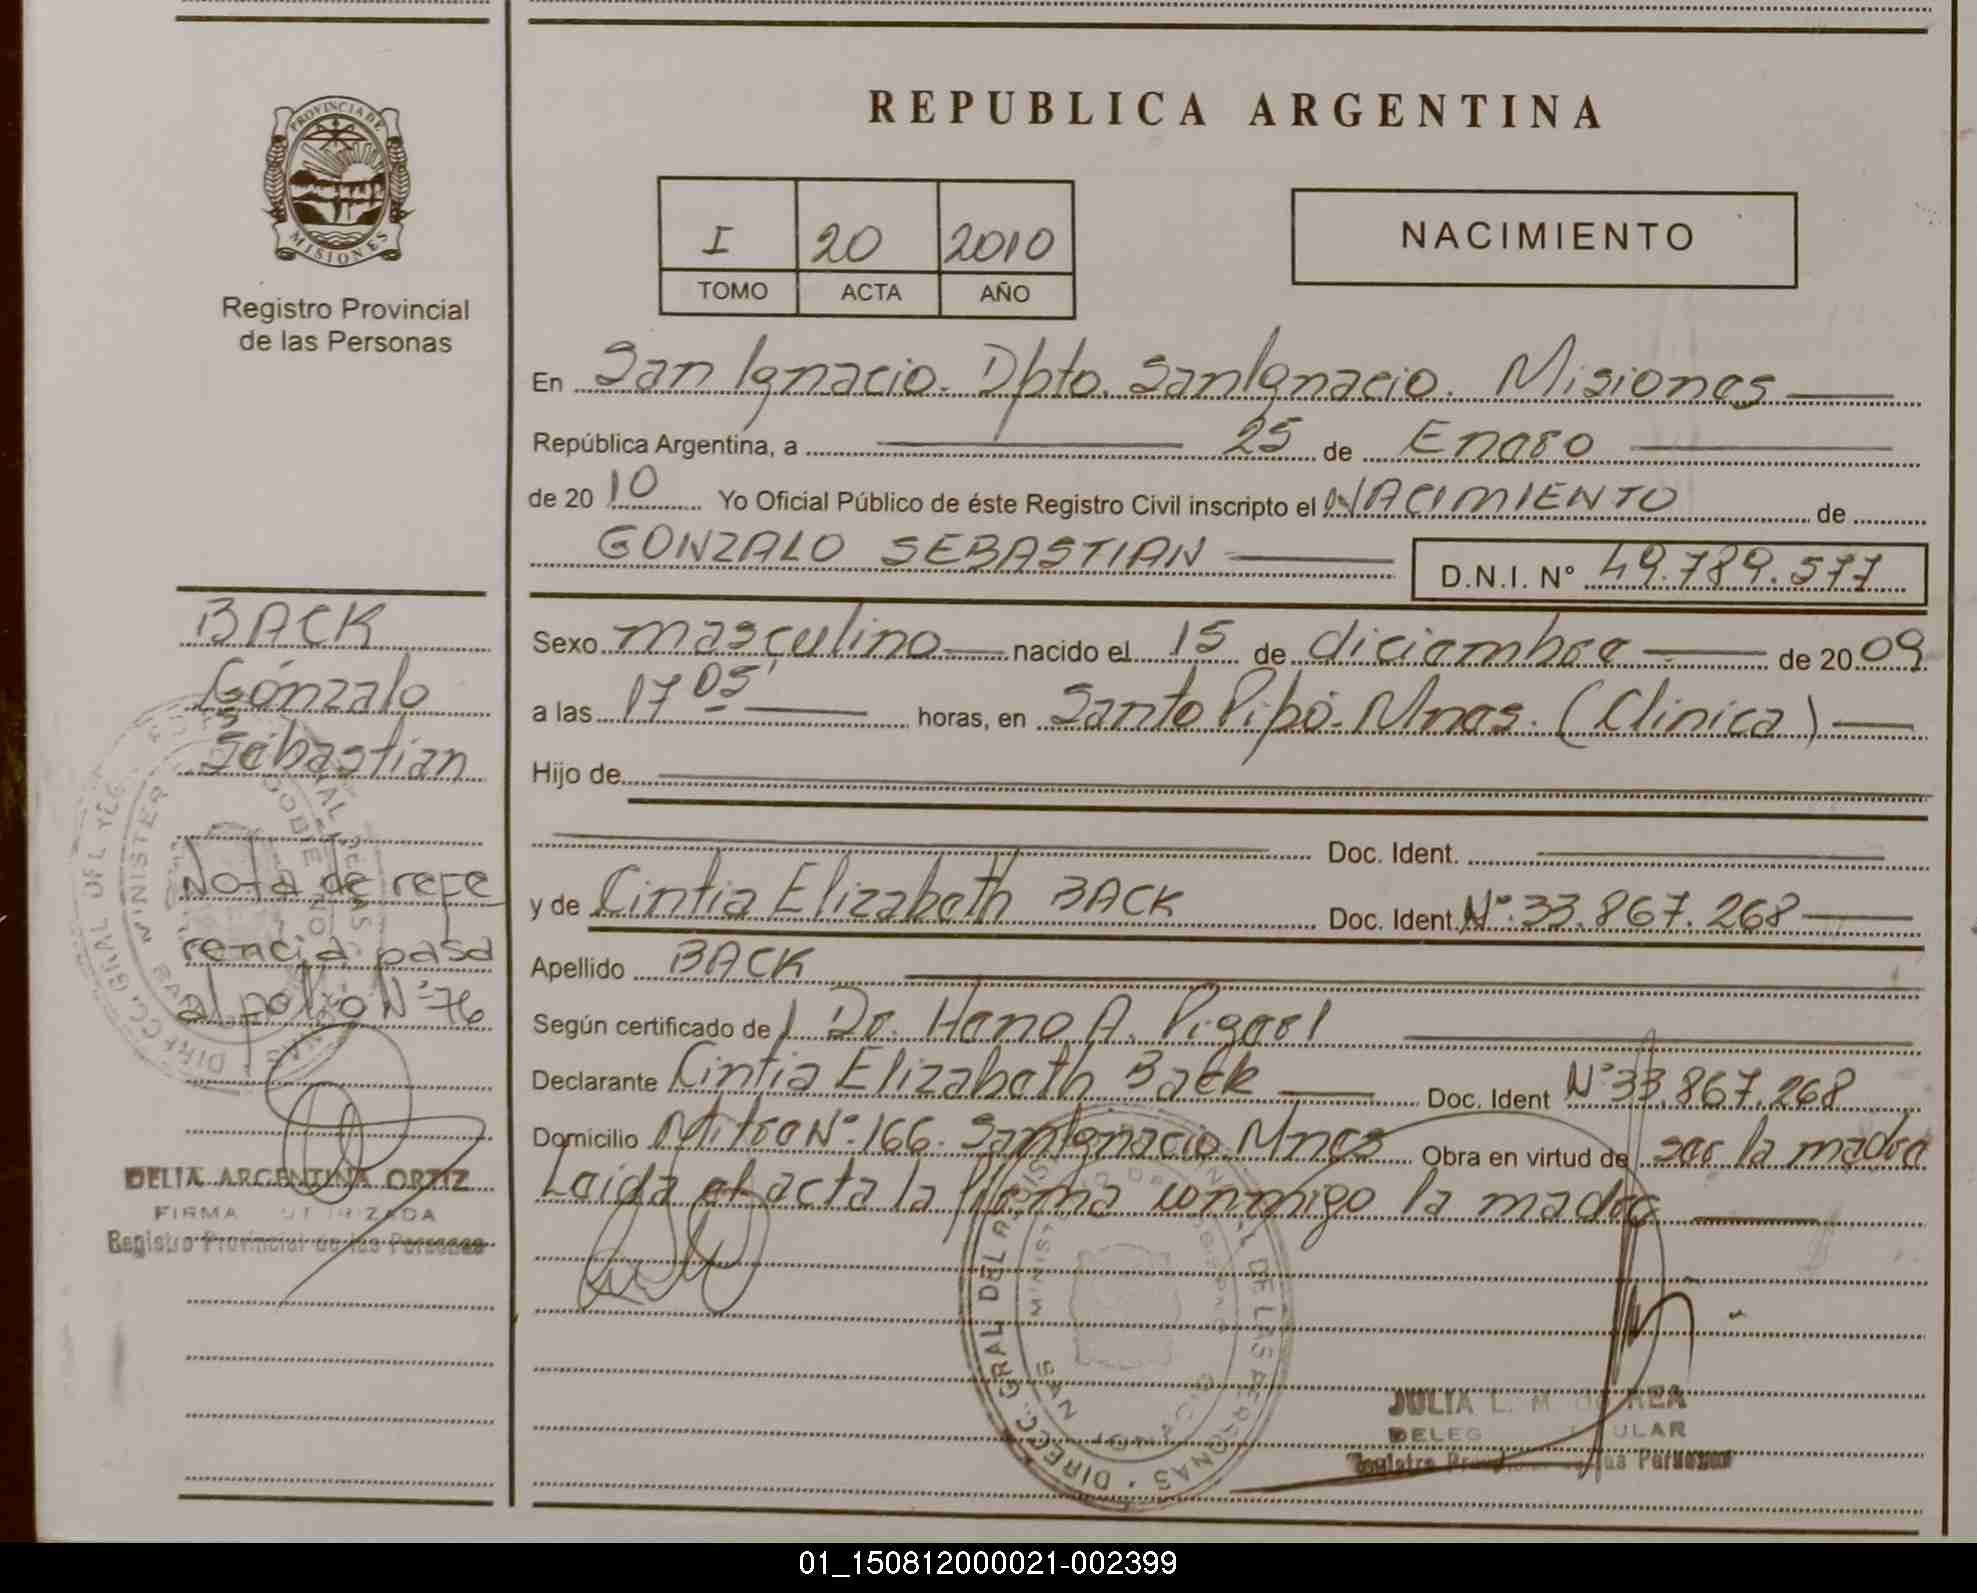 PROVINCIA DE
MISIONES
Registro Provincial
de las Personas
REPUBLICA ARGENTINA
I 20 2010
TOMO ACTA AÑO
NACIMIENTO
En San Ignacio. Dpto. San Ignacio. Misiones
República Argentina, a 25 de Enero
de 2010 Yo Oficial Público de éste Registro Civil inscripto el NACIMIENTO de
GONZALO SEBASTIAN D.N.I. Nº 49.789.577
Sexo masculino nacido el 15 de diciembre de 2009
a las 17 05' horas, en Santo Pipó. Mnes. (Clinica)
Hijo de
Doc. Ident.
y de Cintia Elizabeth BACK Doc. Ident. Nº 33.867.268
Apellido BACK
Según certificado de Dr. A.
Declarante Cintia Elizabeth Back Doc. Ident Nº 33.867.268
Domicilio Mitre Nº 166. San Ignacio. Mnes Obra en virtud de ser la madre
Leida el acta la firma conmigo la madre
BACK
Gonzalo
Sebastian
Nota de refe
rencia pasa
al folio Nº 76
DELIA ARGENTINA ORTIZ
FIRMA
Registro Provincial de las Personas
JULIA L. M. de REA
Registro de las Personas
01_150812000021-002399